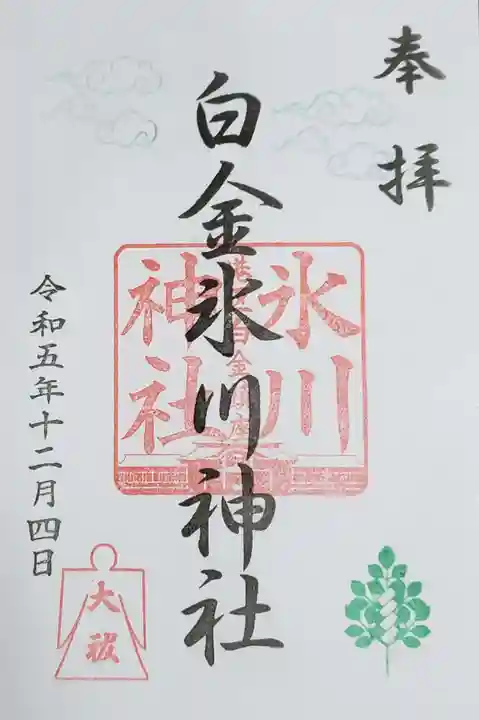 奉拝
白金氷川神社
氷川
神社
令和五年十二月四日
大祓